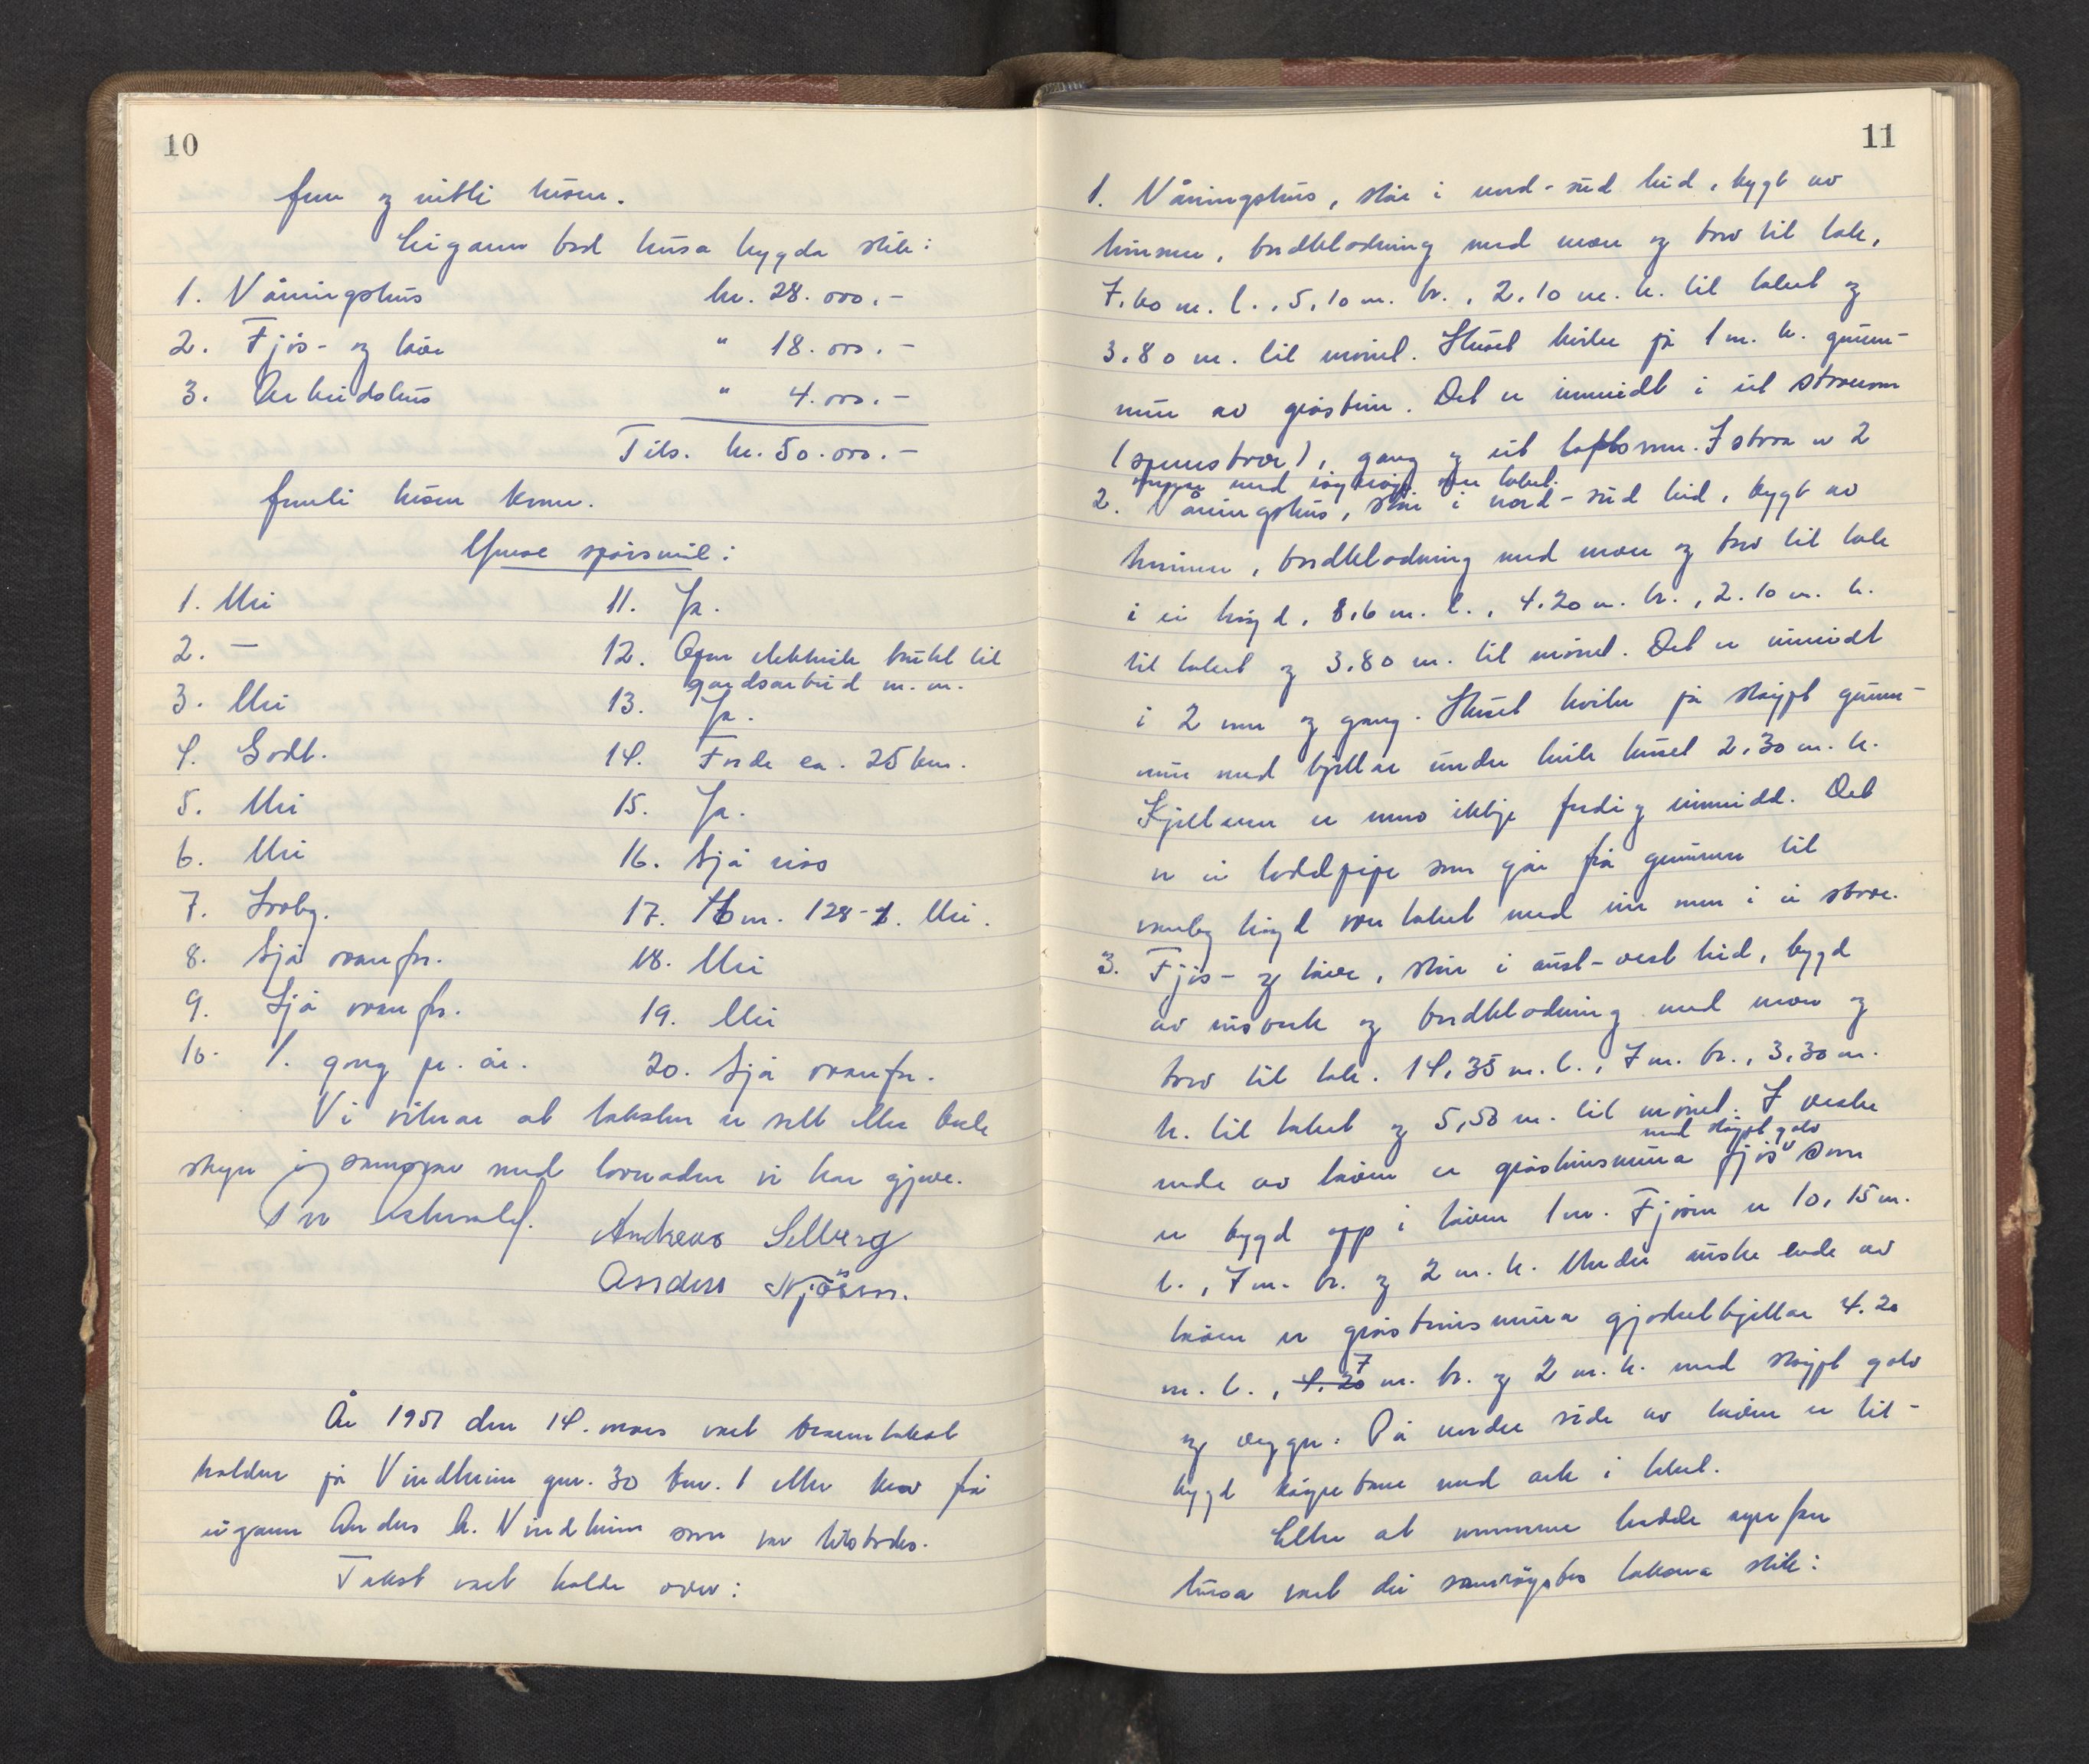 10
frem og nittli husom.
Eigaren bad husa bygda slik:
1. Våningshus kr. 28.000.-
2. Fjøs- og løe " 18.000.-
3. Arbeidshus " 4.000.-
Tils. kr. 50.000.-
husom
Ymse spørsmål:
1. Nei 11. Ja.
2. — 12. elektrisk brukt til
gardsarbeid m.m.
3. Nei 13. Ja.
4. Godt. 14. Førde ca. 25 km.
5. Nei 15. Ja.
6. Nei 16. Sjå riss
7. 17. m. Nei.
8. Sjå ovanfor. 18. Nei
9. Sjå ovanfor. 19. Nei
10. 1. gong pr. år. 20. Sjå ovanfor.
Vi vitnar at taksten er sett etter beste
skyn i samsvar med lovnaden vi har gjeve.
Andreas Selberg
Anders
År 1951 den 14. mars vart branntakst
halden på Vindheim gnr. 30 bnr. 1 etter krav frå
eigaren Anders A. Vindheim som var tilstades.
Takst vart halde over:
11
1. Våningshus, står i nord-sud leid, bygt av
timmer, bordkledning med mon og torv til tak,
7.60 m. l., 5,10 m. br., 2,10 m. h. til taket og
3.80 m. til mønet. Huset kviler på 1 m. h. grunn-
mur av gråstein. Det er innreidt i eit stoverom
gang og eit loftsrom. I stova er 2
over taket.
2. Våningshus, står i nord-sud leid, bygt av
timmer, bordkledning med mon og torv til tak
i ei høgd, 8,6 m. l., 4.20 m. br., 2.10 m. h.
til taket og 3.80 m. til mønet. Det er innreidt
i 2 rom og gang. Huset kviler på støypt grunn-
mur med kjellar under heile huset 2,30 m. h.
Kjellaren er enno ikkje ferdig innreidd. Det
er ei loddpipe som går frå grunnen til
vanleg høgd over taket med ein omn i ei stove.
3. Fjøs- og løe, står i aust-vest leid, bygd
av reisverk og bordkledning med mon og
torv til tak. 14,35 m. l., 7 m. br., 3,30 m.
h. til taket og 5,50 m. til mønet. I vestre
med støypt golv
ende av løa er gråsteinsmura fjøs som
er bygd opp i løa 1 m. Fjøsen er 10,15 m.
l., 7 m. br. og 2 m. h. Under austre ende av
løa er gråsteinsmura gjødselkjellar 4.20
7
m. l., 4.20 m. br. og 2 m. h. med støypt golv
og vegger. På nordre side av løa er til-
bygd køyrebru med ark i taket.
Etter at nemnda hadde synfare
husa vart dei samrøystes taksera slik: